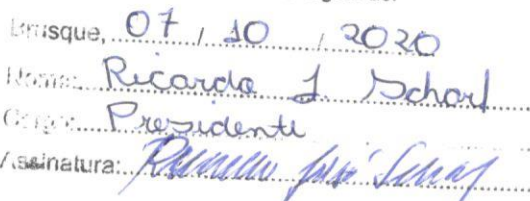 Brusque, 07 / 10 / 2020
Nome: Ricardo J. Scharf
Cargo: Presidente
Assinatura: José